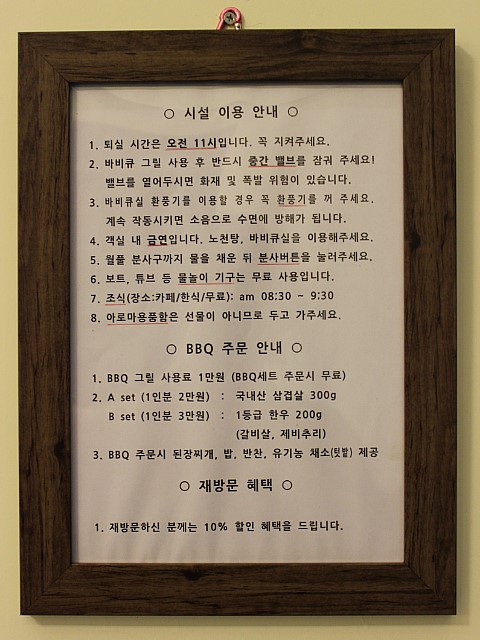 ○ 시설 이용 안내 ○
1. 퇴실 시간은 오전 11시입니다. 꼭 지켜주세요.
2. 바비큐 그릴 사용 후 반드시 중간 밸브를 잠궈 주세요!
밸브를 열어두시면 화재 및 폭발 위험이 있습니다.
3. 바비큐실 환풍기를 이용할 경우 꼭 환풍기를 꺼 주세요.
계속 작동시키면 소음으로 수면에 방해가 됩니다.
4. 객실 내 금연입니다. 노천탕, 바비큐실을 이용해주세요.
5. 월풀 분사구까지 물을 채운 뒤 분사버튼을 눌러주세요.
6. 보트, 튜브 등 물놀이 기구는 무료 사용입니다.
7. 조식(장소:카페/한식/무료): am 08:30 ~ 9:30
8. 아로마용품함은 선물이 아니므로 두고 가주세요.
○ BBQ 주문 안내 ○
1. BBQ 그릴 사용료 1만원 (BBQ세트 주문시 무료)
2. A set (1인분 2만원) : 국내산 삼겹살 300g
B set (1인분 3만원) : 1등급 한우 200g
(갈비살, 제비추리)
3. BBQ 주문시 된장찌개, 밥, 반찬, 유기농 채소(텃밭) 제공
○ 재방문 혜택 ○
1. 재방문하신 분께는 10% 할인 혜택을 드립니다.